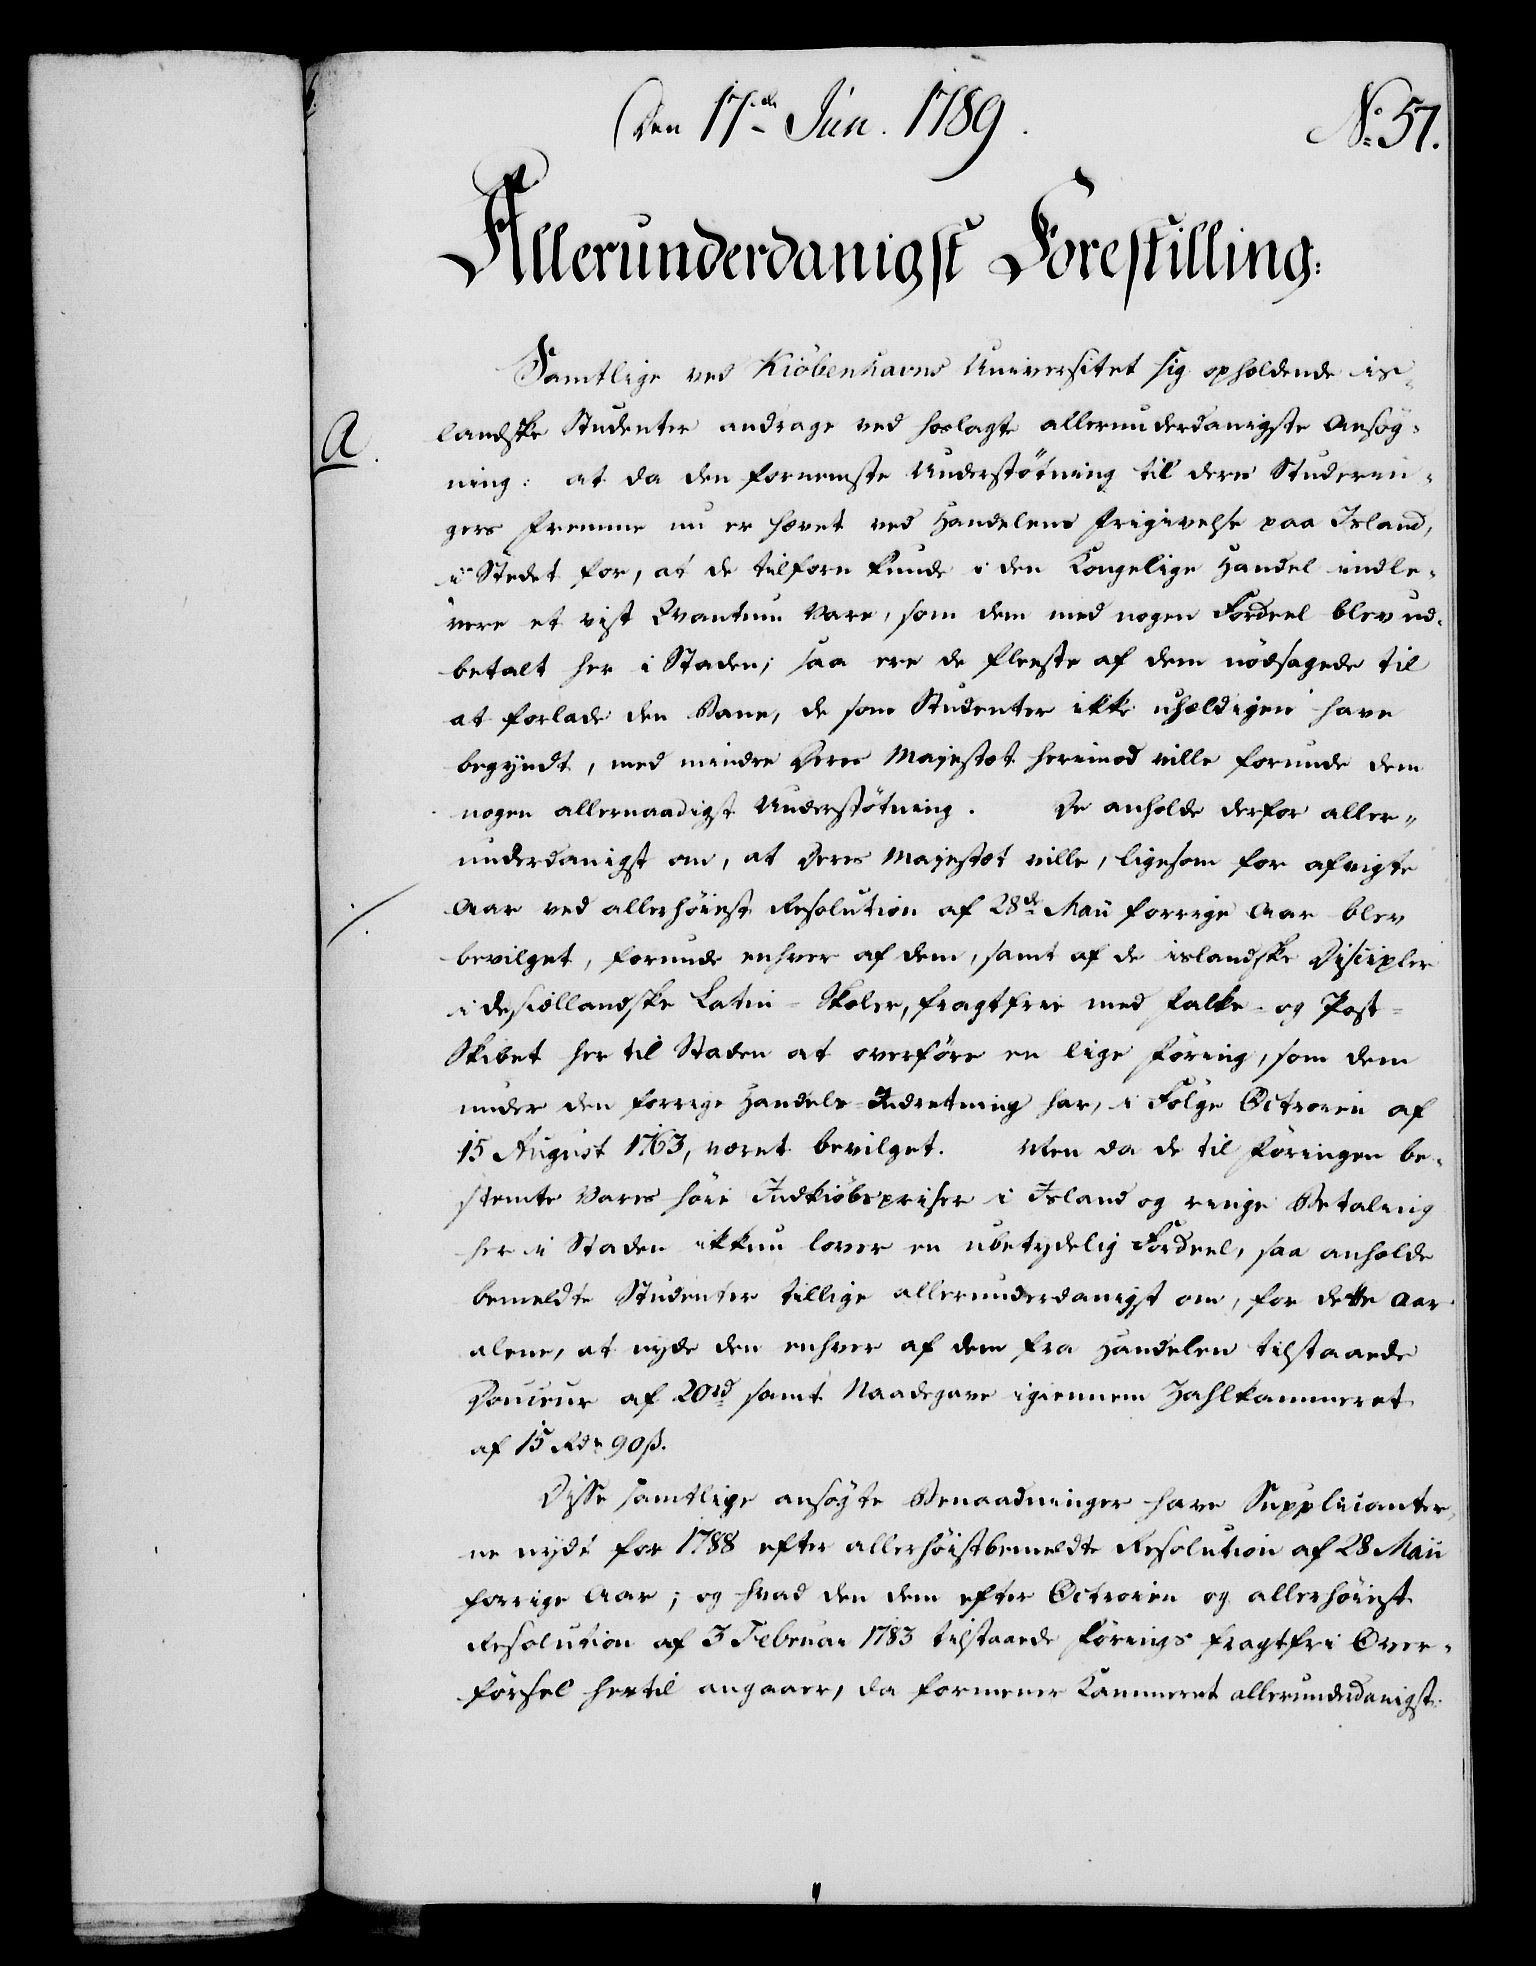 Den 17de Jun. 1789.
No: 57.
Allerunderdanigst Forestilling:
Samtlige ved Kiöbenhavns Universitet sig opholdende is-
A.
landske Studenter andrage ved hoslagte allerunderdanigste Ansøg-
ning: at da den fornemste Understøtning til deres Studerin-
gers Fremme nu er hævet ved Handelens Frigivelse paa Island,
i Stedet for, at de tilforn kunde i den Kongelige Handel indle-
vere et vist Qvantum Vare, som dem med nogen Fordeel blev ud-
betalt her i Staden; saa ere de fleeste af dem nödsagede til
at forlade den Bane, de som Studenter ikke uheldigen have
begyndt, med mindre Deres Majestæt herimod ville forunde dem
nogen allernaadigst Understøtning. De anholde derfor aller-
underdanigst om, at Deres Majestæt ville, ligesom for afvigte
Aar ved allerhöieste Resolution af 28de Maii forrige Aar blev
bevilget, forunde enhver af dem, samt af de islandske Discipler
i de siellandske Latin-Skoler, fragtfrie med Falke- og Post-
Skibet her til Staden at overföre en lige Föring, som dem
under den forrige Handels-Indretning har, i Fölge Octroien af
15 August 1763, været bevilget. Men da de til Föringen be-
stemte Vares höie Indkiöbspriser i Island og ringe Betaling
her i Staden ikkun lover en ubetydelig Fordeel, saa anholde
bemeldte Studenter tillige allerunderdanigst om, for dette Aar
alene, at nyde den enhver af dem fra Handelen tilstaaede
Douceur af 20rd samt Naadegave igiennem Zahlkammeret
af 15 Rdr 90 ß.
Disse samtlige ansøgte Benaadninger have Supplicanter-
ne nydt for 1788 efter allerhöistbemeldte Resolution af 28 Maii
forrige Aar; og hvad den dem efter Octroien og allerhöieste
Resolution af 3 Februar 1783 tilstaaede Förings fragtfri Over-
försel hertil angaaer, da formener Kammeret allerunderdanigst